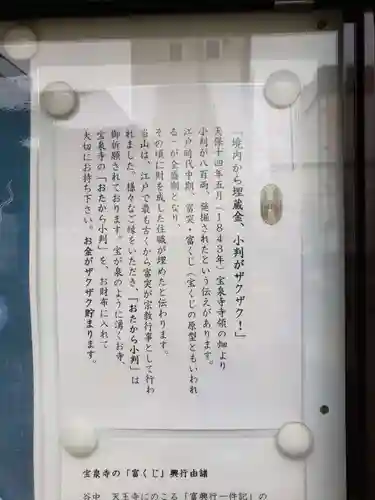 「境内から埋蔵金、小判がザクザク！」
天保十四年五月（1843年）宝泉寺寺領の畑より
小判が八百両、発掘されたという伝えがあります。
江戸時代中期、富突・富くじ（宝くじの原型ともいわれ
る）が全盛期となり、
その頃に財を成した住職が埋めたと伝わります。
当山は、江戸で最も古くから富突が宗教行事として行わ
れました。様々なご縁をいただき、「おたから小判」は
御祈願されております。宝が泉のように湧くお寺、
宝泉寺の「おたから小判」を、お財布に入れて
大切にお持ち下さい。お金がザクザク貯まります。
宝泉寺の「富くじ」興行由諸
谷中 天王寺にのこる「富興行一件記」の